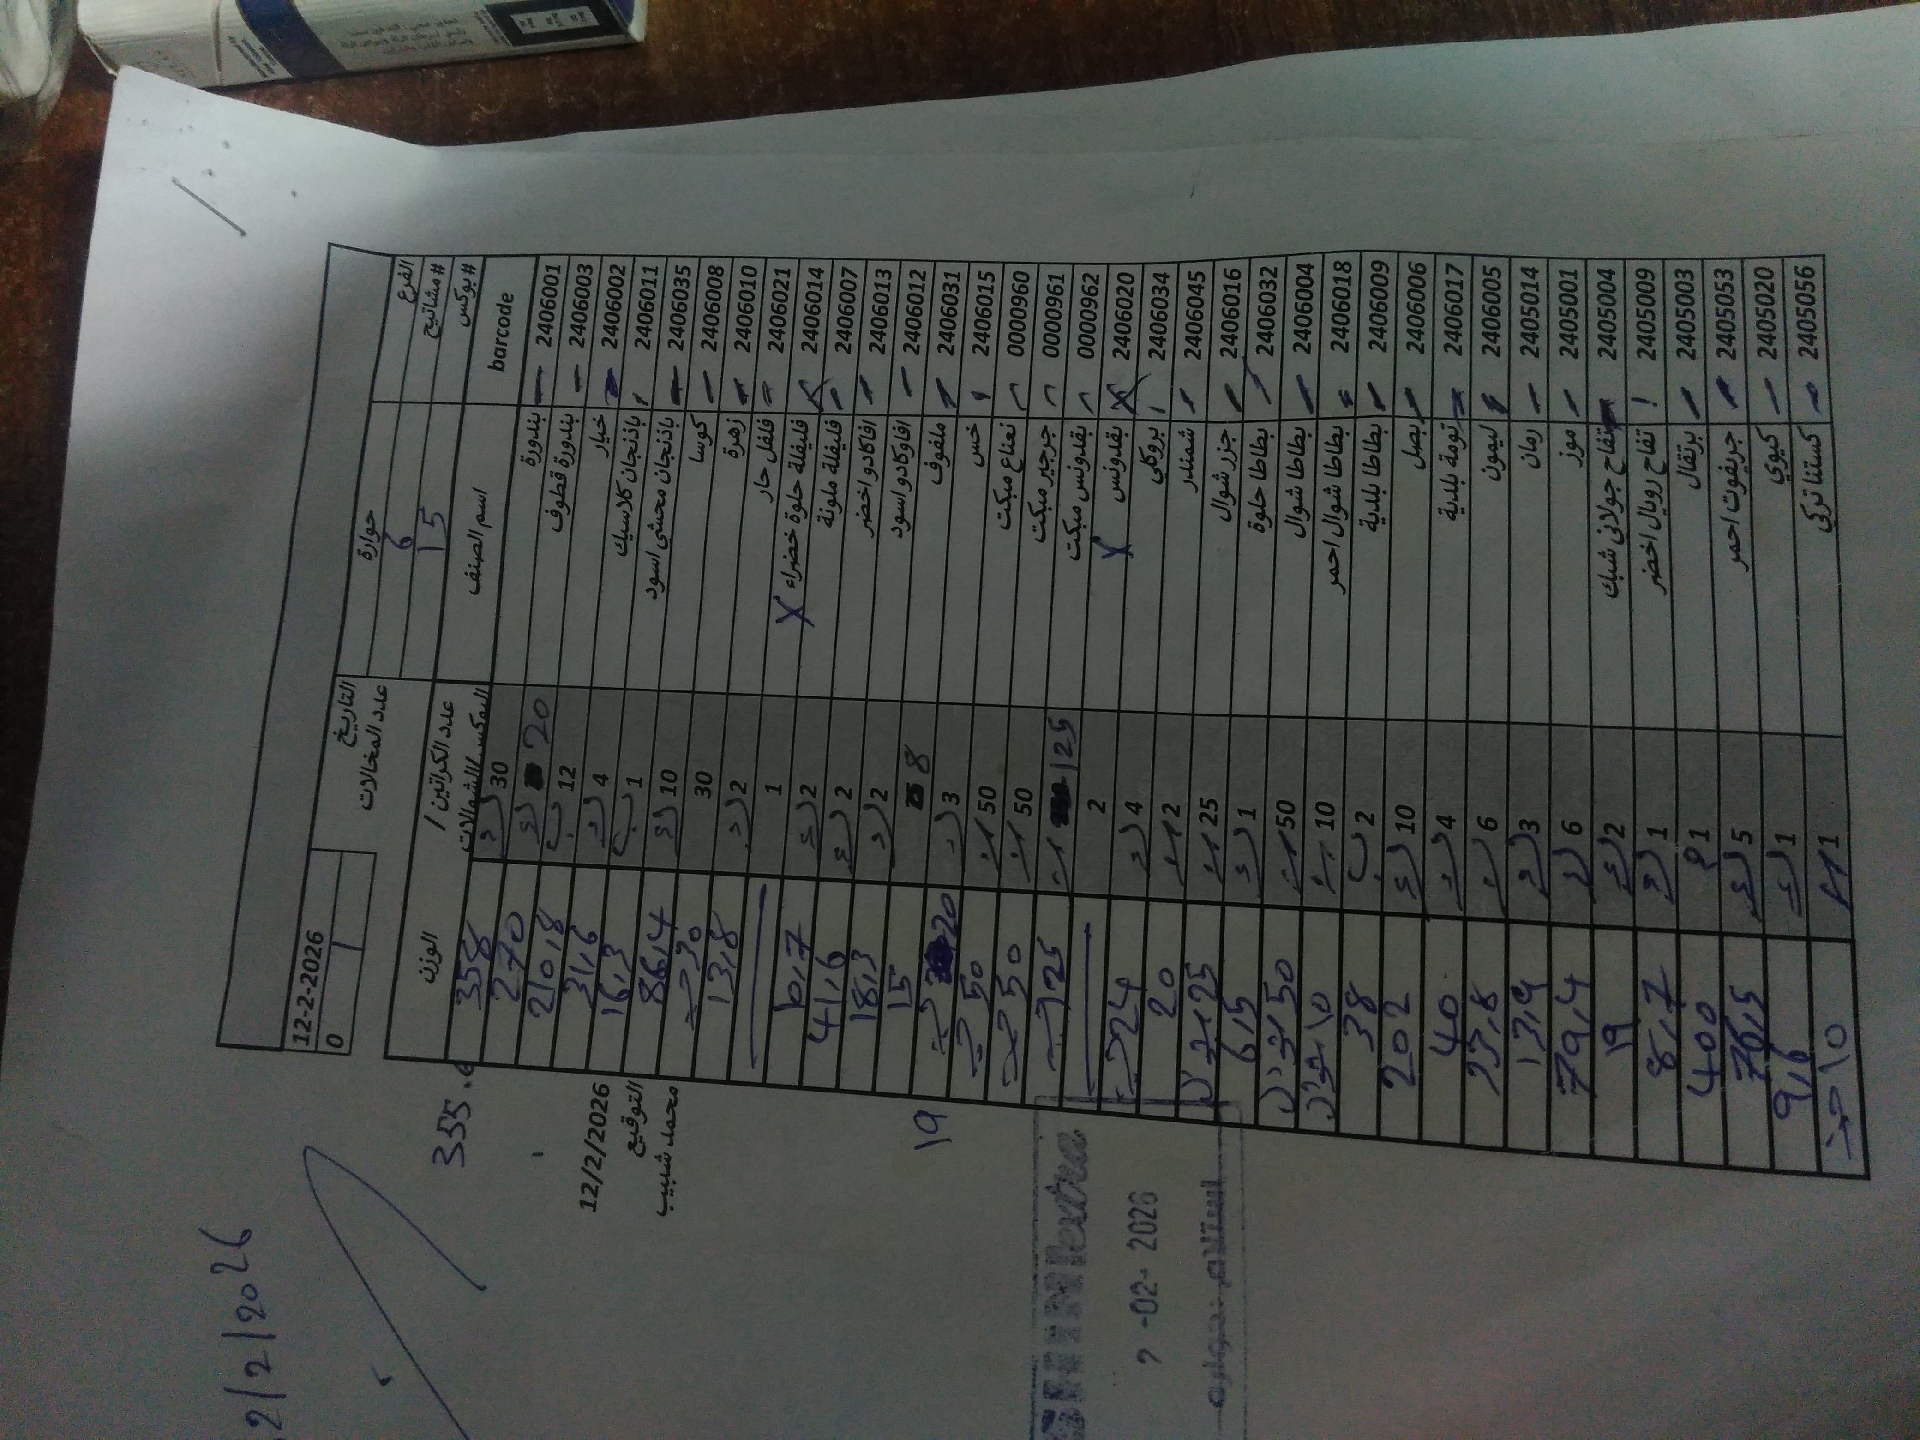 12/2/2026
الفرع حوارة التاريخ 12-2-2026
#مشاتيح 6 عدد المخالات 0
#بوكس 15 1
barcode اسم الصنف عدد الكراتين / البوكس /الشوالات الوزن
2406001 بندورة 30 358 355.
2406003 بندورة قطوف 20 270
2406002 خيار 12 210,8
2406011 باذنجان كلاسيك 4 31,6
2406035 باذنجان محشي اسود 1 16,3
2406008 كوسا 10 86,4
2406010 زهرة 30 30
2406021 فلفل حار 2 13,8
2406014 فليفلة حلوة خضراء X 1
2406007 فليفلة ملونة 2 10,7
2406013 افاكادو اخضر 2 41,6
2406012 افاوكادو اسود 2 18,3
2406031 ملفوف 8 15
2406015 خس 3 20 19
0000960 نعناع مبكت 50 50
0000961 جرجير مبكت 50 50
0000962 بقدونس مبكت 125 125
2406020 بقدونس X 2
2406034 بروكلي 4 24
2406045 شمندر 2 20
2406016 جزر شوال 25 25
2406032 بطاطا حلوة 1 6,5
2406004 بطاطا شوال 50 50
2406018 بطاطا شوال احمر 10 10
2406009 بطاطا بلدية 2 38
2406006 بصل 10 202
2406017 تومة بلدية 4 40
2406005 ليمون 6 23,8
2405014 رمان 3 13,9
2405001 موز 6 79,4
2405004 تفاح جولاني شبك 2 19
2405009 تفاح رويال اخضر 1 8,7
2405003 برتقال 1 400
2405053 جريفوت احمر 5 76,5
2405020 كيوي 1 9,6
2405056 كستنا تركي 1 10
12/2/2026
التوقيع
محمد شبيب
-02- 2026